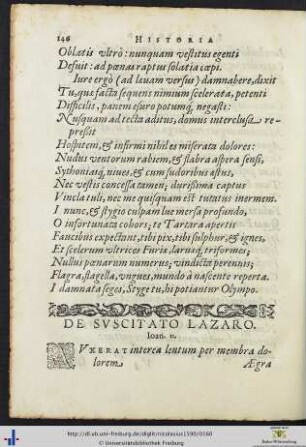 146 HISTORIA
Oblatis vltrò: nunquam vestitus egenti
Defuit: ad pœnas raptus solatia cœpi.
Iure ergò (ad læuam versus) damnabere, dixit
Tu, quæ facta sequens nimium scelerata, petenti
Difficilis, panem esuro potumq́; negasti:
Nusquam ad tecta aditus, domus interclusa re-
pressit
Hospitem, & infirmi nihil es miserata dolores:
Nudus ventorum rabiem, & flabra aspera sensi,
Sythoniasq́; niues, & cum sudoribus æstus,
Nec vestis concessa tamen; durissima captus
Vincla tuli, nec me quisquam est tutatus inermem.
I nunc, & stygio culpam lue mersa profundo,
O infortunata cohors; te Tartara apertis
Faucibus expectant, tibi pix, tibi sulphur, & ignes,
Et scelerum vltrices Furiæ, laruæq́; triformes;
Nullus pœnarum numerus; vindicta perennis;
Flagra, flagella, vngues, mundo à nascente reperta.
I damnata seges, Styge tu, hi potiantur Olympo.
DE SVSCITATO LAZARO.
Ioan. 11.
NVXERAT interea lentum per membra do-
lorem
Ægra
http://dl.ub.uni-freiburg.de/diglit/nicolasius1590/0160
© Universitätsbibliothek Freiburg
Baden-Württemberg